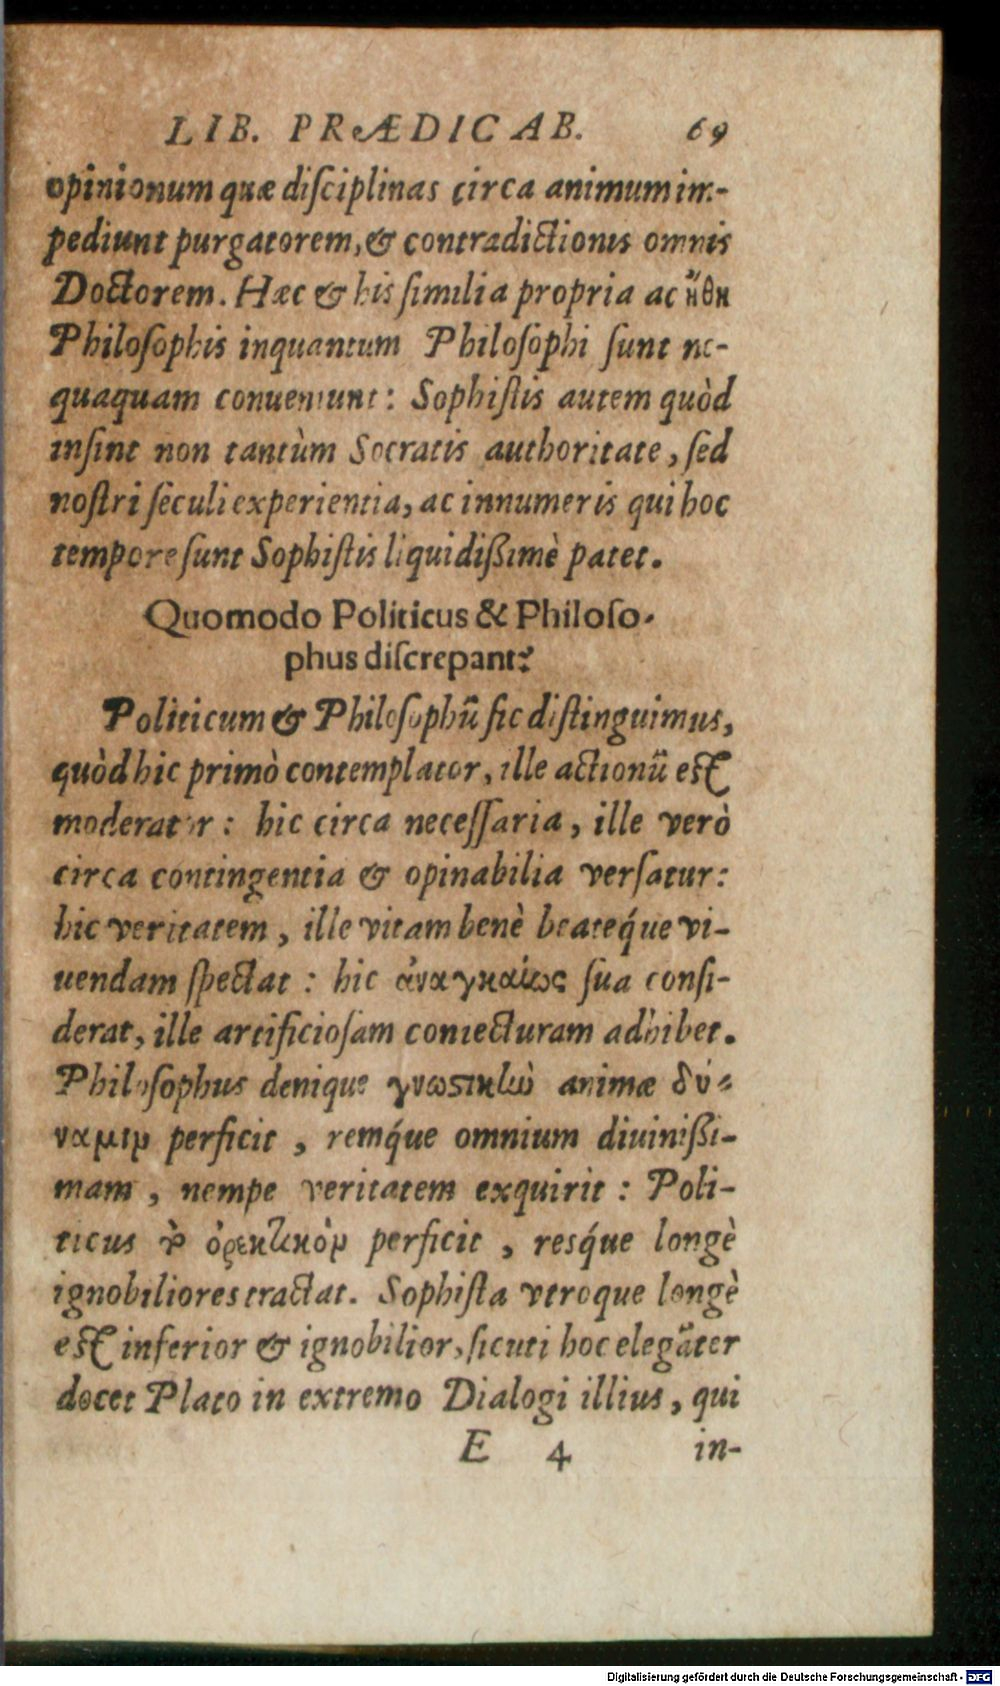 LIB. PRÆDICAB. 69
opinionum quæ diſciplinas circa animum im-
pediunt purgatorem, & contradictionis omnis
Doctorem. Hæc & his ſimilia propria ac ἤθη
Philoſophis inquantum Philoſophi ſunt ne-
quaquam conueniunt: Sophiſtis autem quòd
inſint non tantùm Socratis authoritate, ſed
noſtri ſeculi experientia, ac innumeris qui hoc
tempore ſunt Sophiſtis liquidißimè patet.
Quomodo Politicus & Philoſo-
phus diſcrepant?
Politicum & Philoſophũ ſic diſtinguimus,
quòd hic primò contemplator, ille actionũ eſt
moderator: hic circa neceſſaria, ille verò
circa contingentia & opinabilia verſatur:
hic veritatem, ille vitam benè beateq́ue vi-
uendam ſpectat: hic ἀναγκαίως ſua conſi-
derat, ille artificioſam coniecturam adhibet.
Philoſophus denique γνωστικὴν animæ δύ-
ναμιν perficit, remq́ue omnium diuinißi-
mam, nempe veritatem exquirit: Poli-
ticus τὸ ὀρεκτικὸν perficit, resq́ue longè
ignobiliores tractat. Sophiſta vtroque longè
eſt inferior & ignobilior, ſicuti hoc elegãter
docet Plato in extremo Dialogi illius, qui
E 4 in-
Digitalisierung gefördert durch die Deutsche Forschungsgemeinschaft - DFG